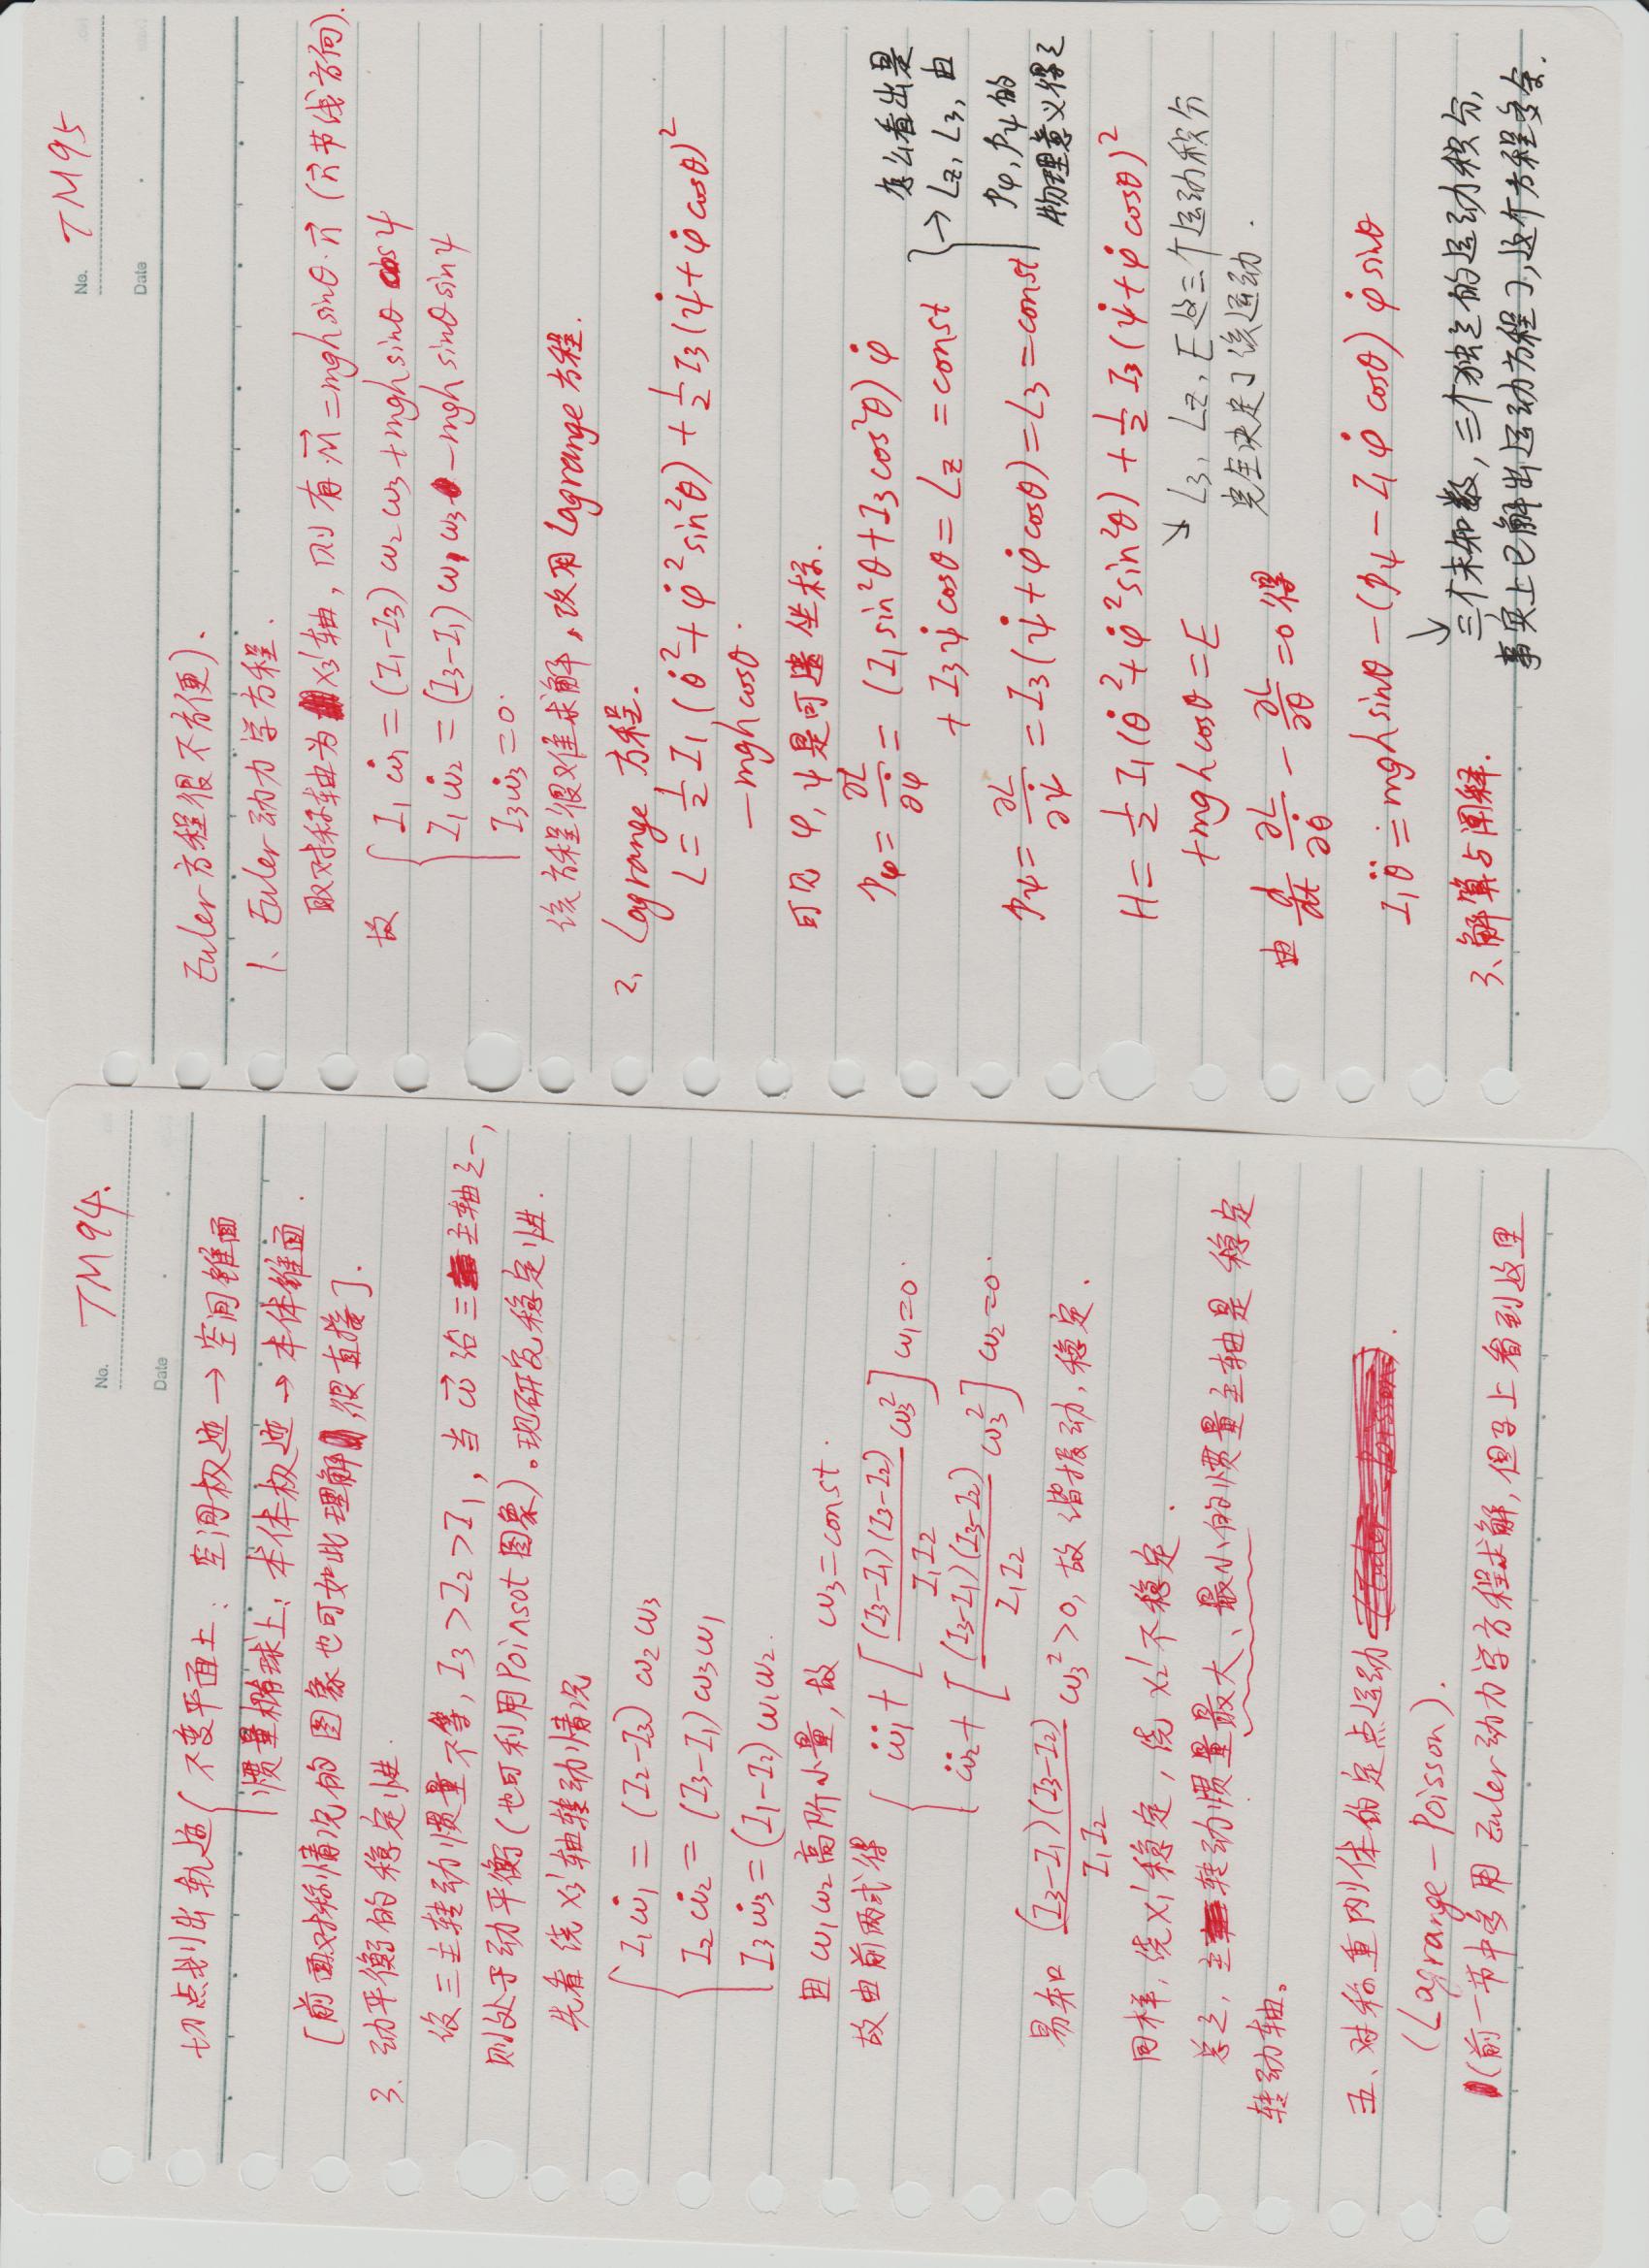 No. TM94.
Date
切点划出轨迹 { 不变平面上：空间极迹 → 空间锥面
惯量椭球上：本体极迹 → 本体锥面.
[前面对称情况的图象也可如此理解,很直接].
3. 动平衡的稳定性.
设三主转动惯量不等, I₃>I₂>I₁, 当 ω⃗ 沿三主轴之一,
则处于动平衡(也可利用Poinsot图象)。现研究稳定性.
先看绕x₃'轴转动情况
I₁ω̇₁ = (I₂-I₃) ω₂ω₃
I₂ω̇₂ = (I₃-I₁) ω₃ω₁
I₃ω̇₃ = (I₁-I₂) ω₁ω₂.
因ω₁ω₂高阶小量, 故 ω₃=const.
故由前两式得 { ω̈₁ + [ (I₃-I₁)(I₃-I₂) / I₁I₂ ω₃² ] ω₁=0.
ω̈₂ + [ (I₃-I₁)(I₃-I₂) / I₁I₂ ω₃² ] ω₂=0.
易知 (I₃-I₁)(I₃-I₂) / I₁I₂ ω₃²>0, 故谐振动, 稳定.
同样, 绕x₁'稳定, 绕x₂'不稳定.
总之, 主转动惯量最大、最小的惯量主轴是稳定
转动轴。
五、对称重刚体的定点运动.
(Lagrange-Poisson).
(前一节中多用Euler动力学方程求解, 但马上看到这里
No. TM95
Date
Euler方程很不方便).
1、Euler动力学方程.
取对称轴为x₃'轴, 则有 M⃗=mgh sinθ·n⃗ (n⃗节线方向).
故 { I₁ω̇₁ = (I₁-I₃) ω₂ω₃+mgh sinθ cosψ
I₁ω̇₂ = (I₃-I₁) ω₁ω₃ -mgh sinθ sinψ
I₃ω̇₃=0.
该方程很难求解, 改用Lagrange方程.
2、Lagrange方程.
L= ½ I₁ (θ̇²+φ̇²sin²θ) + ½ I₃ (ψ̇+φ̇ cosθ)²
-mgh cosθ.
可见 φ, ψ是可遗坐标.
p_φ = ∂L/∂φ̇ = (I₁sin²θ+I₃cos²θ) φ̇
+ I₃ψ̇ cosθ = L_z = const
p_ψ = ∂L/∂ψ̇ = I₃(ψ̇+φ̇cosθ)=L₃=const
→ 怎么看出是
L_z, L₃, 由
p_φ, p_ψ的
物理意义得之
H= ½ I₁(θ̇²+φ̇²sin²θ) + ½ I₃(ψ̇+φ̇ cosθ)²
+mgh cosθ=E
↘ L₃, L_z, E这三个运动积分
完全决定了该运动.
由 d/dt ∂L/∂θ̇ - ∂L/∂θ =0 得
I₁θ̈ = mgh sinθ -(p_ψ - I₁φ̇ cosθ) φ̇ sinθ
3、解算与阐释.
↓ 三个未知数, 三个独立的运动积分,
事实上已解出运动方程了, 这个方程多余.